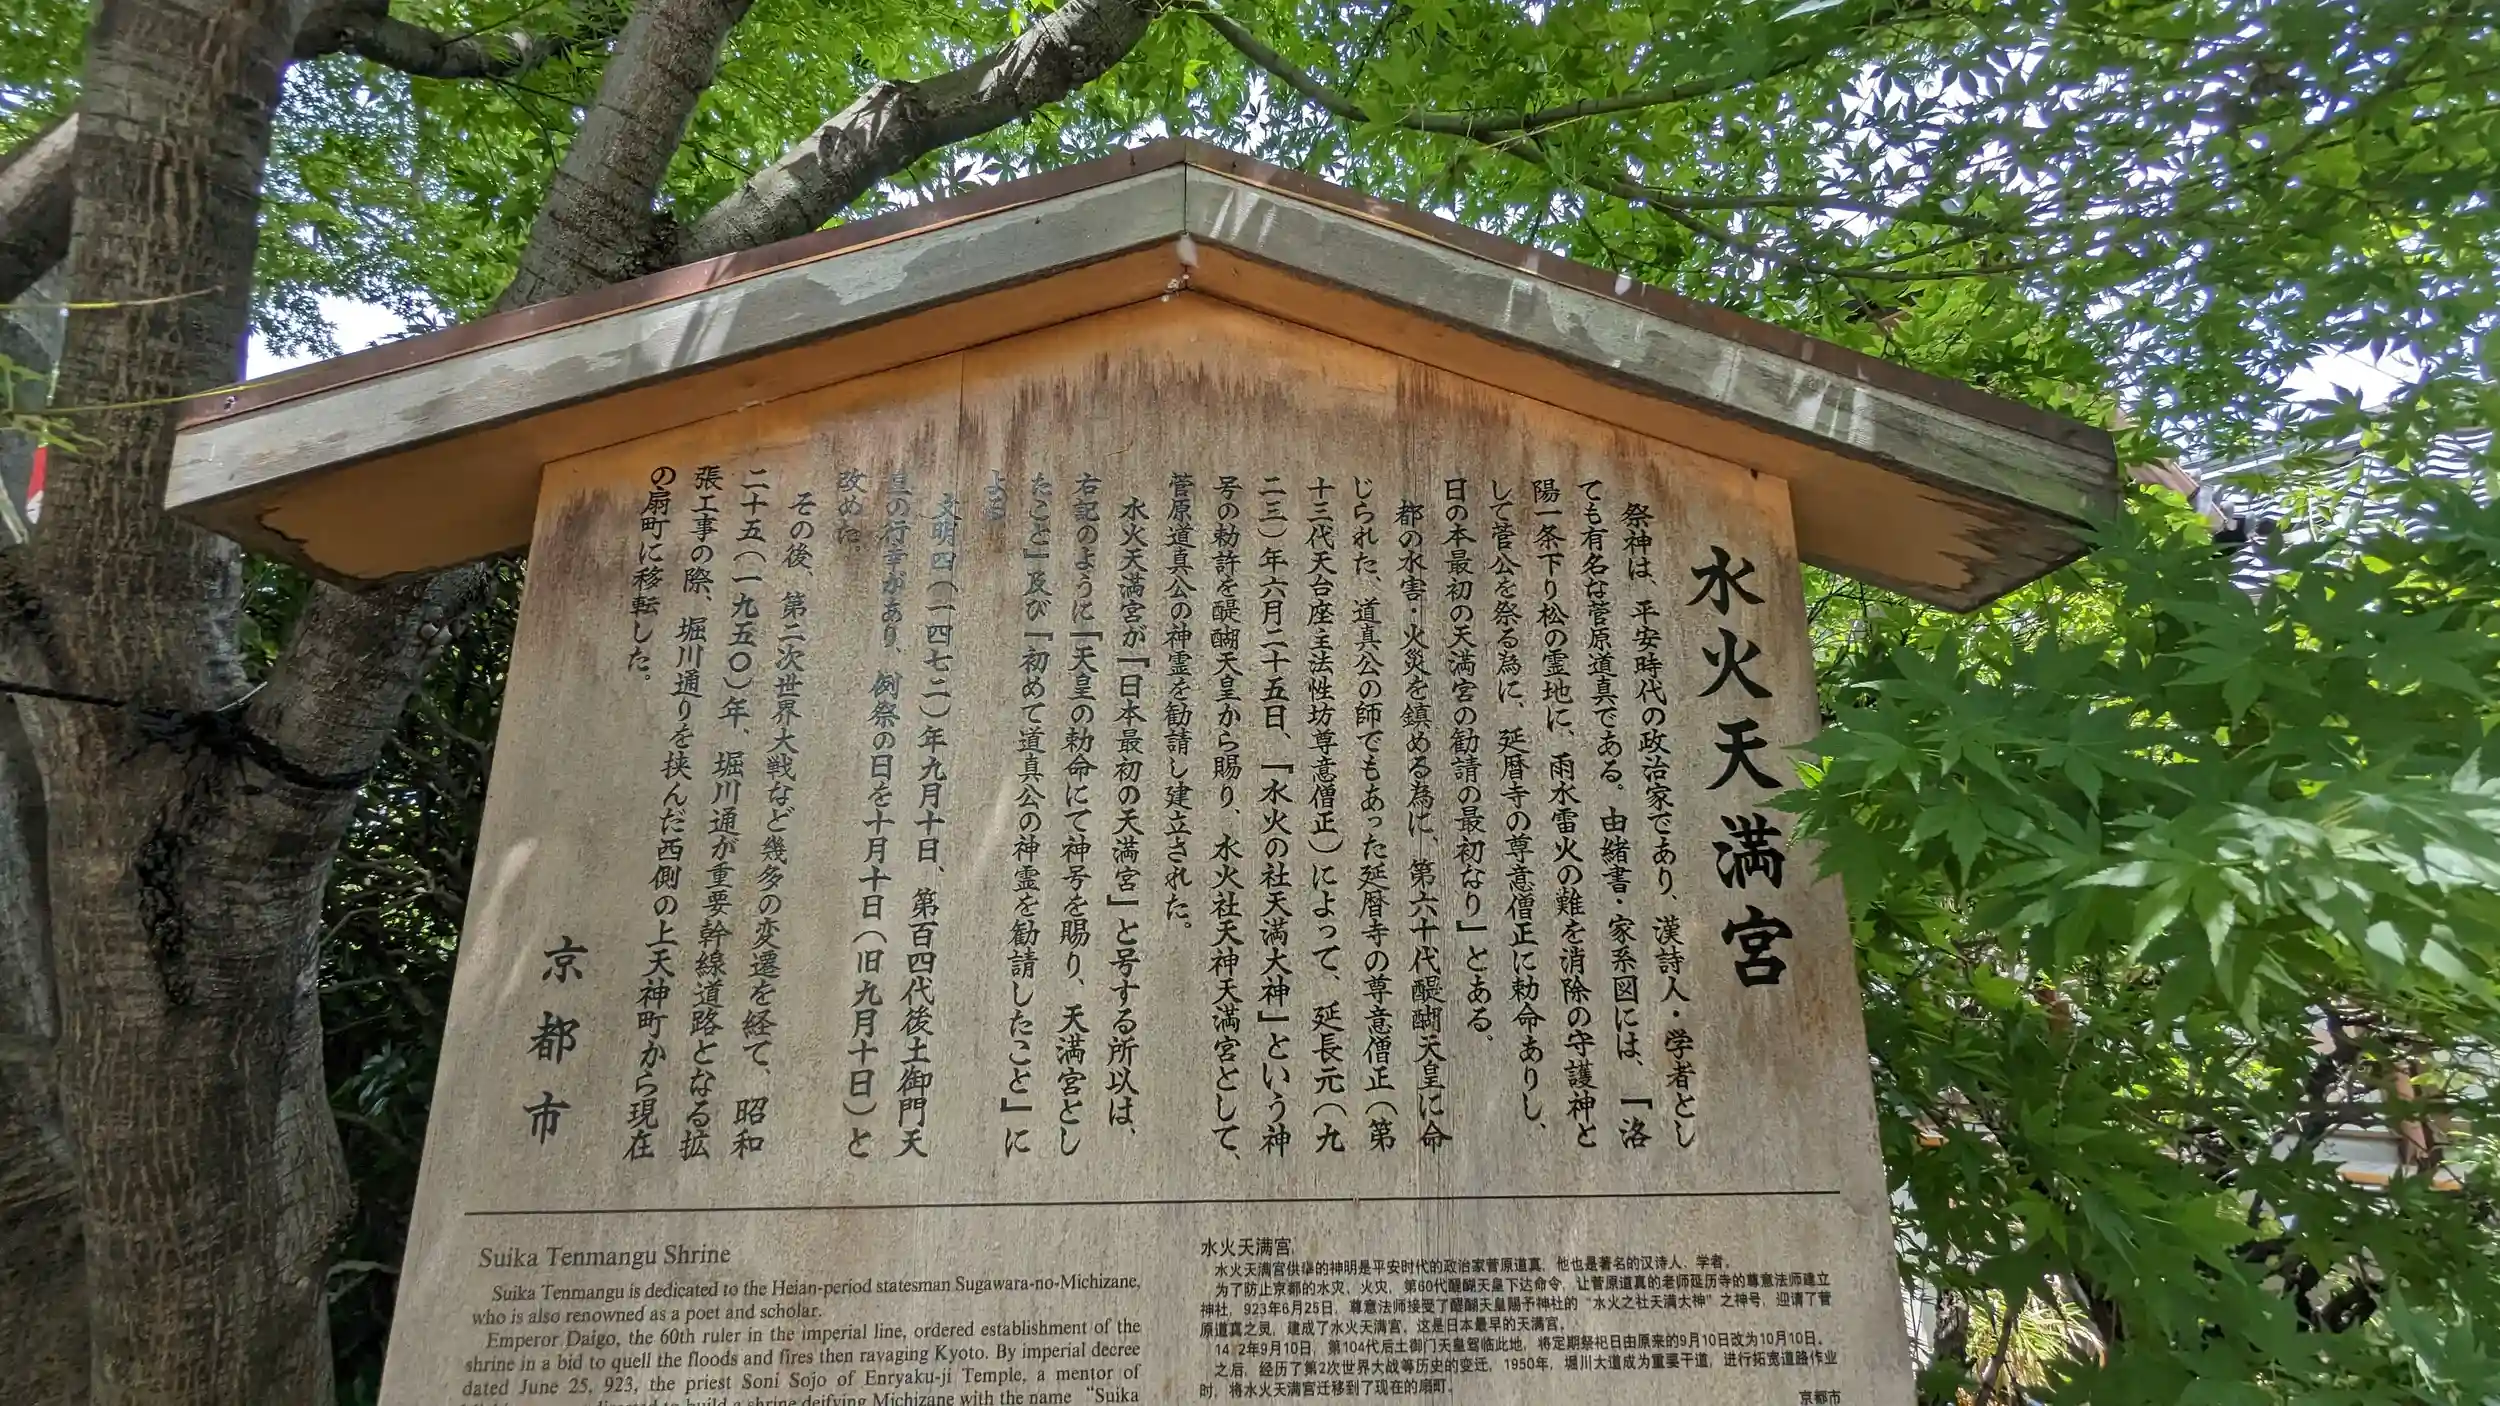 水火天満宮
祭神は、平安時代の政治家であり、漢詩人・学者とし
ても有名な菅原道真である。由緒書・家系図には、「洛
陽一条下り松の霊地に、雨水雷火の難を消除の守護神と
して菅公を祭る為に、延暦寺の尊意僧正に勅命ありし、
日の本最初の天満宮の勧請の最初なり」とある。
都の水害・火災を鎮める為に、第六十代醍醐天皇に命
じられた、道真公の師でもあった延暦寺の尊意僧正(第
十三代天台座主法性坊尊意僧正)によって、延長元(九
二三)年六月二十五日、「水火の社天満大神」という神
号の勅許を醍醐天皇から賜り、水火社天神天満宮として、
菅原道真公の神霊を勧請し建立された。
水火天満宮が「日本最初の天満宮」と号する所以は、
右記のように「天皇の勅命にて神号を賜り、天満宮とし
たこと」及び「初めて道真公の神霊を勧請したこと」に
よる
文明四(一四七二)年九月十日、第百四代後土御門天
皇の行幸があり、例祭の日を十月十日(旧九月十日)と
改めた。
その後、第二次世界大戦など幾多の変遷を経て、昭和
二十五(一九五〇)年、堀川通が重要幹線道路となる拡
張工事の際、堀川通りを挟んだ西側の上天神町から現在
の扇町に移転した。
京都市
Suika Tenmangu Shrine
Suika Tenmangu is dedicated to the Heian-period statesman Sugawara-no-Michizane,
who is also renowned as a poet and scholar.
Emperor Daigo, the 60th ruler in the imperial line, ordered establishment of the
shrine in a bid to quell the floods and fires then ravaging Kyoto. By imperial decree
dated June 25, 923, the priest Soni Sojo of Enryaku-ji Temple, a mentor of
to build a shrine deifying Michizane with the name “Suika
水火天满宫
水火天满宫供奉的神明是平安时代的政治家菅原道真，他也是著名的汉诗人、学者。
为了防止京都的水灾，火灾，第60代醍醐天皇下达命令，让菅原道真的老师延历寺的尊意法师建立
神社，923年6月25日，尊意法师接受了醍醐天皇赐予神社的“水火之社天满大神”之神号，迎请了菅
原道真之灵，建成了水火天满宫，这是日本最早的天满宫。
14 2年9月10日，第104代后土御门天皇驾临此地，将定期祭祀日由原来的9月10日改为10月10日。
之后，经历了第2次世界大战等历史的变迁，1950年，堀川大道成为重要干道，进行拓宽道路作业
时，将水火天满宫迁移到了现在的扇町。
京都市